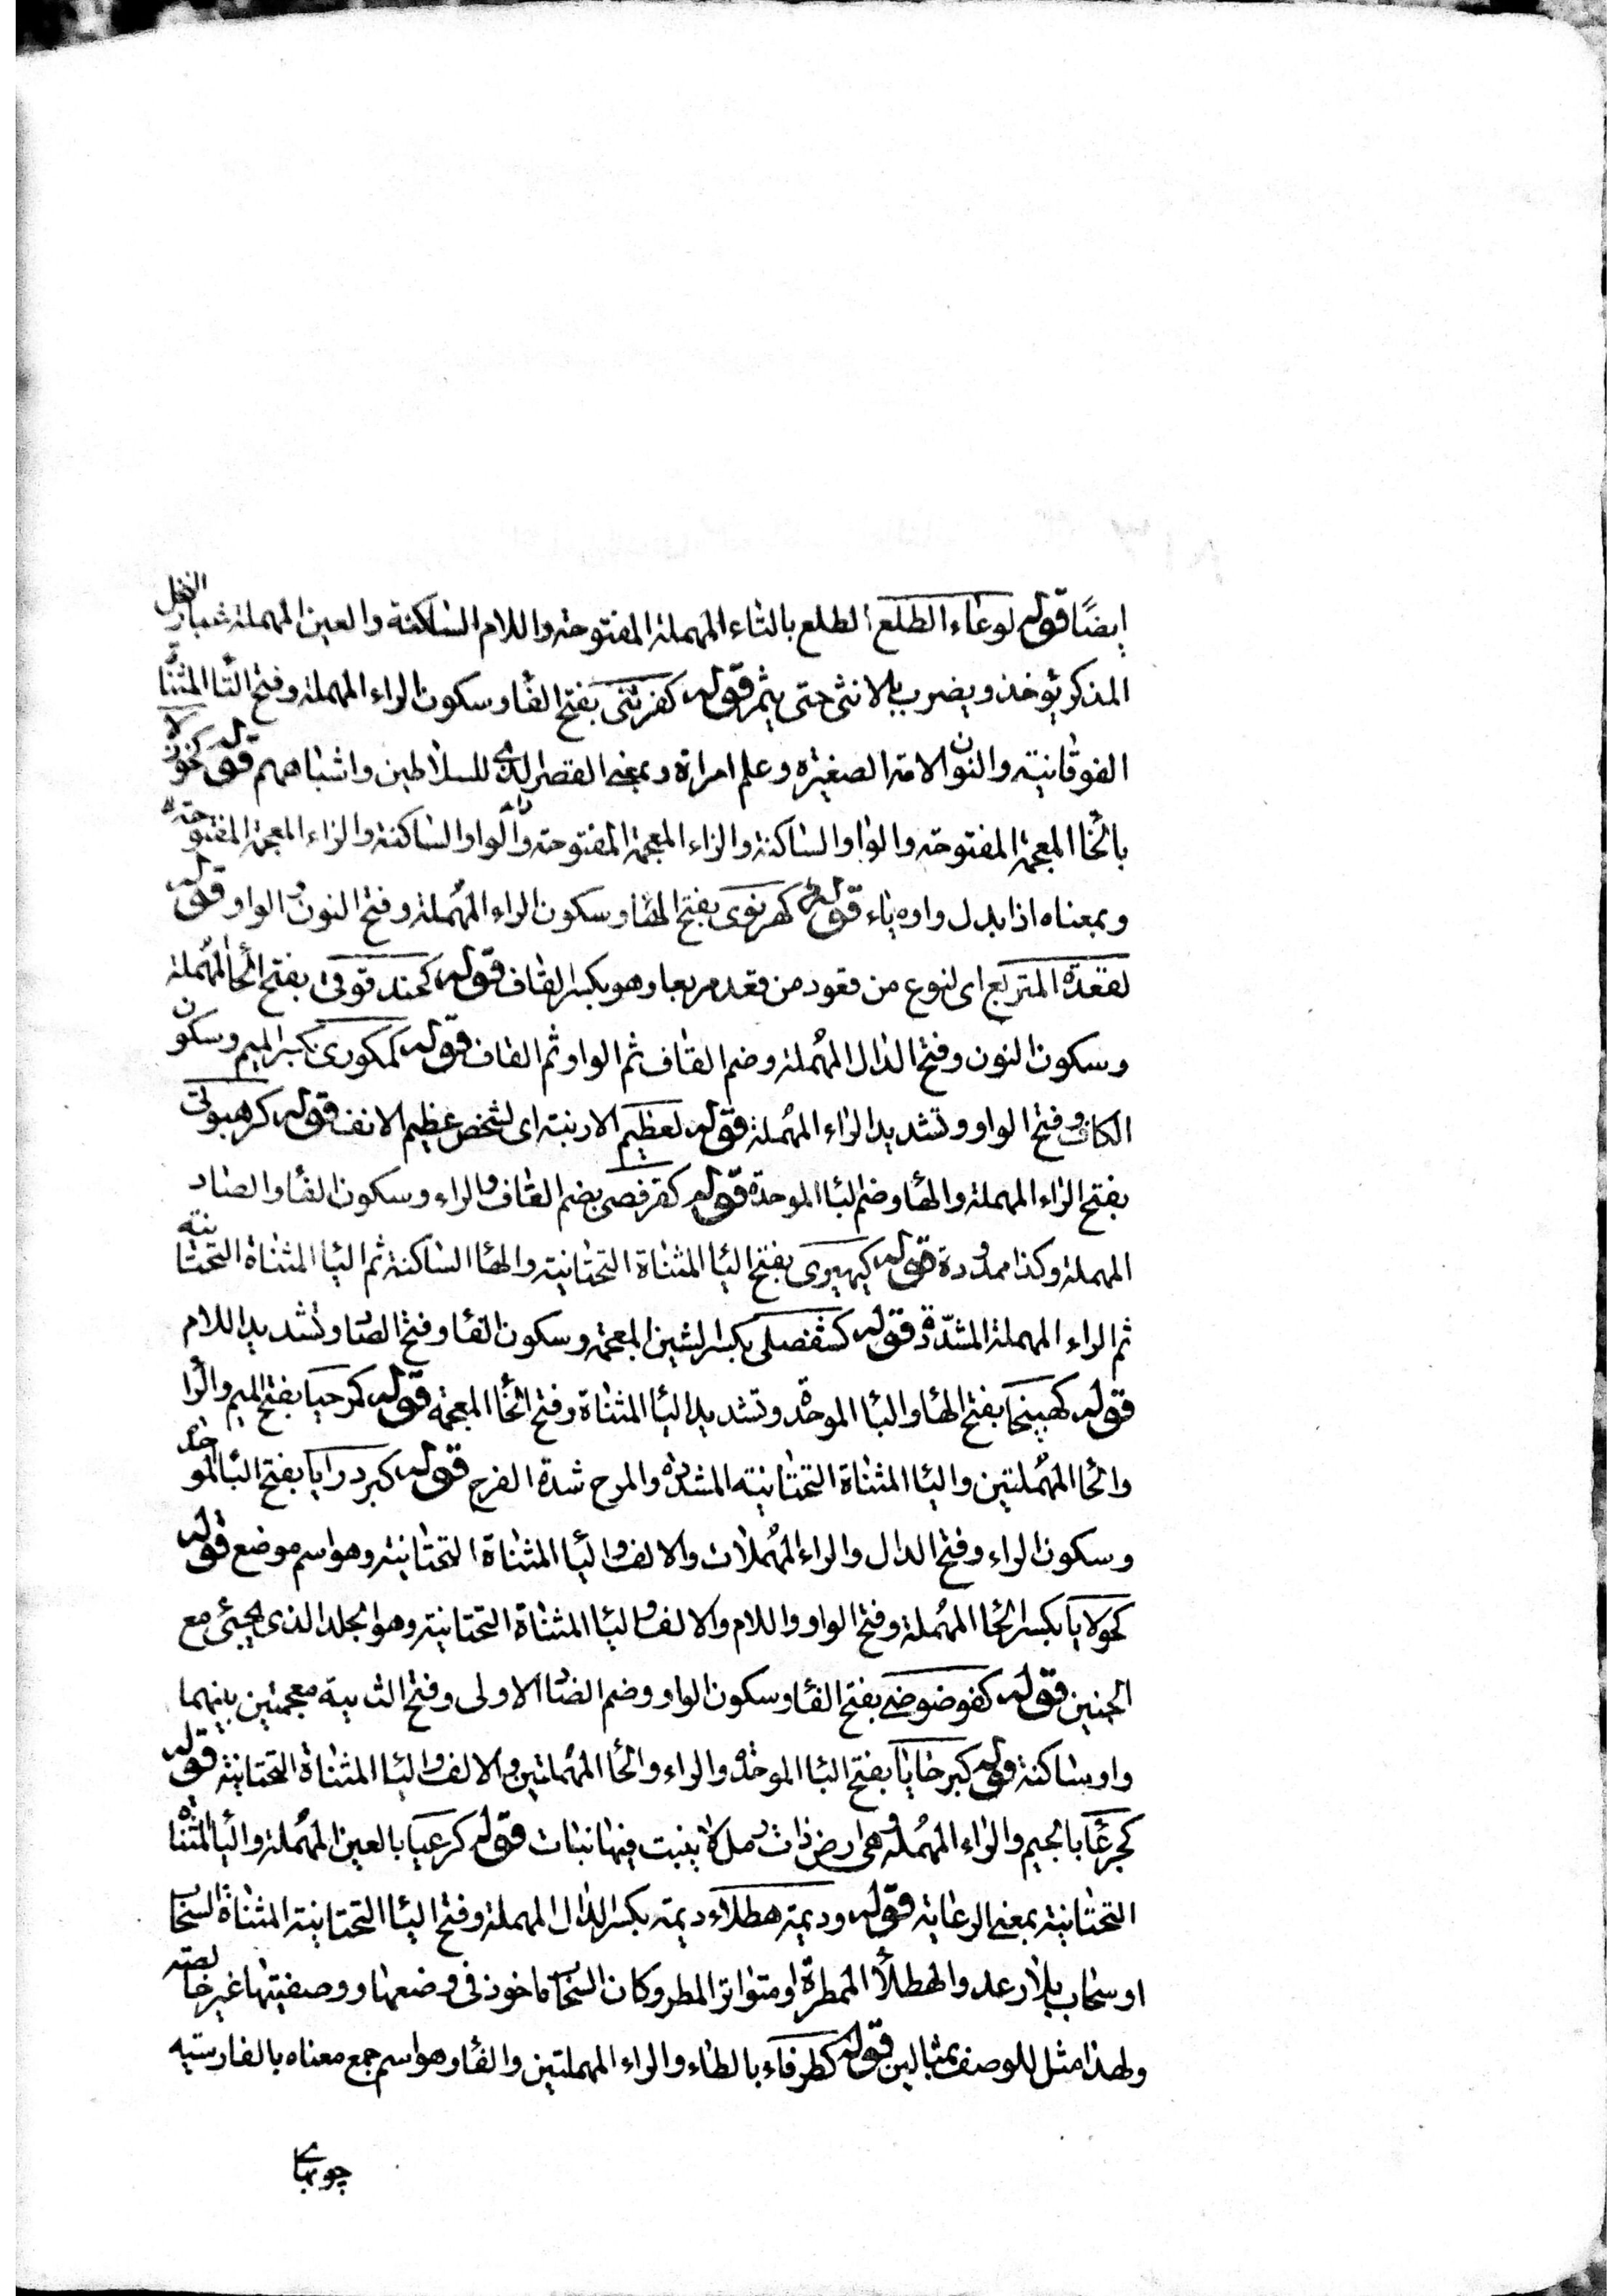 ايضًا قوله لوعاء الطلع الطلع بالتاء المهملة المفتوحة واللام الساكنة والعين المهملة شعبار النخل
المذكر يؤخذ ويضرب بالانثى حتى يثمر قوله كفرتنى بفتح الفا وسكون الراء المهملة وفتح التا المثناة
الفوقانية والنون الامة الصغيره وعلم امراة وبمعنى القصر الذى للسلاطين واشباههم قوله كخوزلا
بالخا المعجمة المفتوحة والواو الساكنة والزاء المعجمة المفتوحة والواو الساكنة والزاء المعجمة المفتوحة
وبمعناه اذا بدل واوه ياء قوله كهرنوى بفتح الها وسكون الراء المهملة وفتح النون والواو قوله
لقعدة المتربع اى لنوع من قعود من قعد مربعا وهو بكسر القاف قوله كحندقوقى بفتح الحا المهملة
وسكون النون وفتح الدال المهملة وضم القاف ثم الواو ثم القاف قوله كمكورى بكسر الميم وسكون
الكاف وفتح الواو وتشديد الراء المهملة قوله لعظيم الارنبة اى لشخص عظيم الانف قوله كرهبوتى
بفتح الراء المهملة والها وضم البا الموحدة قوله كقرفصى بضم القاف والراء وسكون الفا والصاد
المهملة وكذا ممدودة قوله كيهيرى بفتح اليا المثناة التحتانية والها الساكنة ثم اليا المثناة التحتانية
ثم الراء المهملة المشددة قوله كشفصلى بكسر الشين المعجمة وسكون الفا وفتح الصاد وتشديد اللام
قوله كهبيخا بفتح الها والبا الموحدة وتشديد اليا المثناة وفتح الخا المعجمة قوله كمرحيا بفتح الميم والرا
والحا المهملتين واليا المثناة التحتانية المشددة والمرح شدة الفرح قوله كبردرايا بفتح البا الموحدة
وسكون الراء وفتح الدال والراء المهملات والالف واليا المثناة التحتانية وهو اسم موضع قوله
كحولايا بكسر الحا المهملة وفتح الواو واللام والالف واليا المثناة التحتانية وهو الجلد الذى يجيئ مع
الجنين قوله كفوضوضى بفتح الفا وسكون الواو وضم الضاد الاولى وفتح الثانية معجمتين بينهما
واو ساكنة قوله كبرحايا بفتح البا الموحدة والراء والحا المهملتين والالف واليا المثناة التحتانية قوله
كجرعا بالجيم والراء المهملة وهى ارض ذات رمل لا ينبت فيها نبات قوله كرعيا بالعين المهملة واليا المثناة
التحتانية بمعنى الرعاية قوله وديمة هطلاء ديمة بكسر الدال المهملة وفتح اليا التحتانية المثناة السحاب
او سحاب بلا رعد والهطلا الممطرة او متواتر المطر وكان السحاب ماخوذ فى وضعها ووصفيتها غير خالصة
ولهذا مثل للوصف بمثالين قوله كطرفاء بالطاء والراء المهملتين والفا وهو اسم جمع معناه بالفارسية
چوبهاى